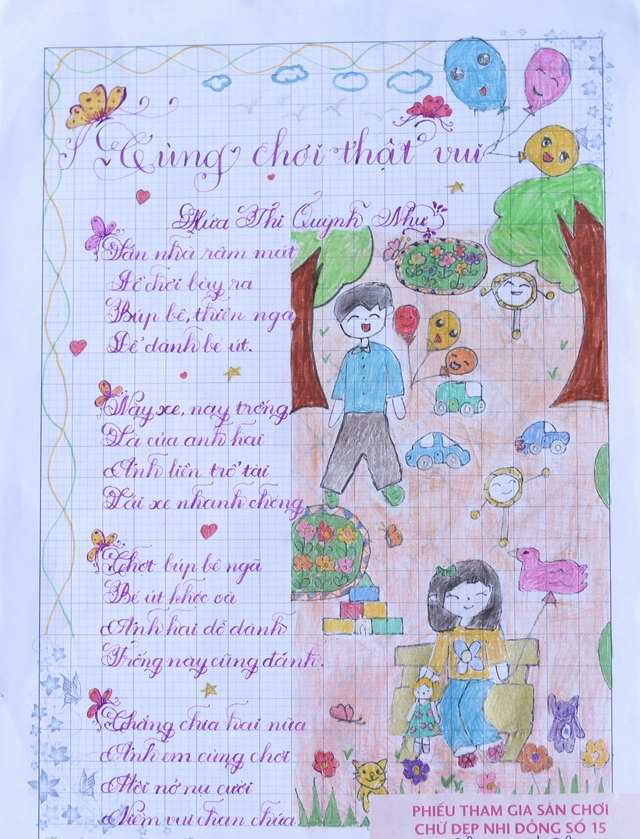 Cùng chơi thật vui
Hứa Thị Quỳnh Như
Sân nhà râm mát
Đồ chơi bày ra
Búp bê, thiên nga
Để dành bé út.
Này xe, này trống
Là của anh hai
Anh liền trổ tài
Lái xe nhanh chóng
Chợt búp bê ngã
Bé út khóc oà
Anh hai dỗ dành
Trống này cũng đánh.
Chẳng chia hai nữa
Anh em cùng chơi
Môi nở nụ cười
Niềm vui chan chứa
PHIẾU THAM GIA SÂN CHƠI
CHỮ ĐẸP NHI ĐỒNG SỐ 15